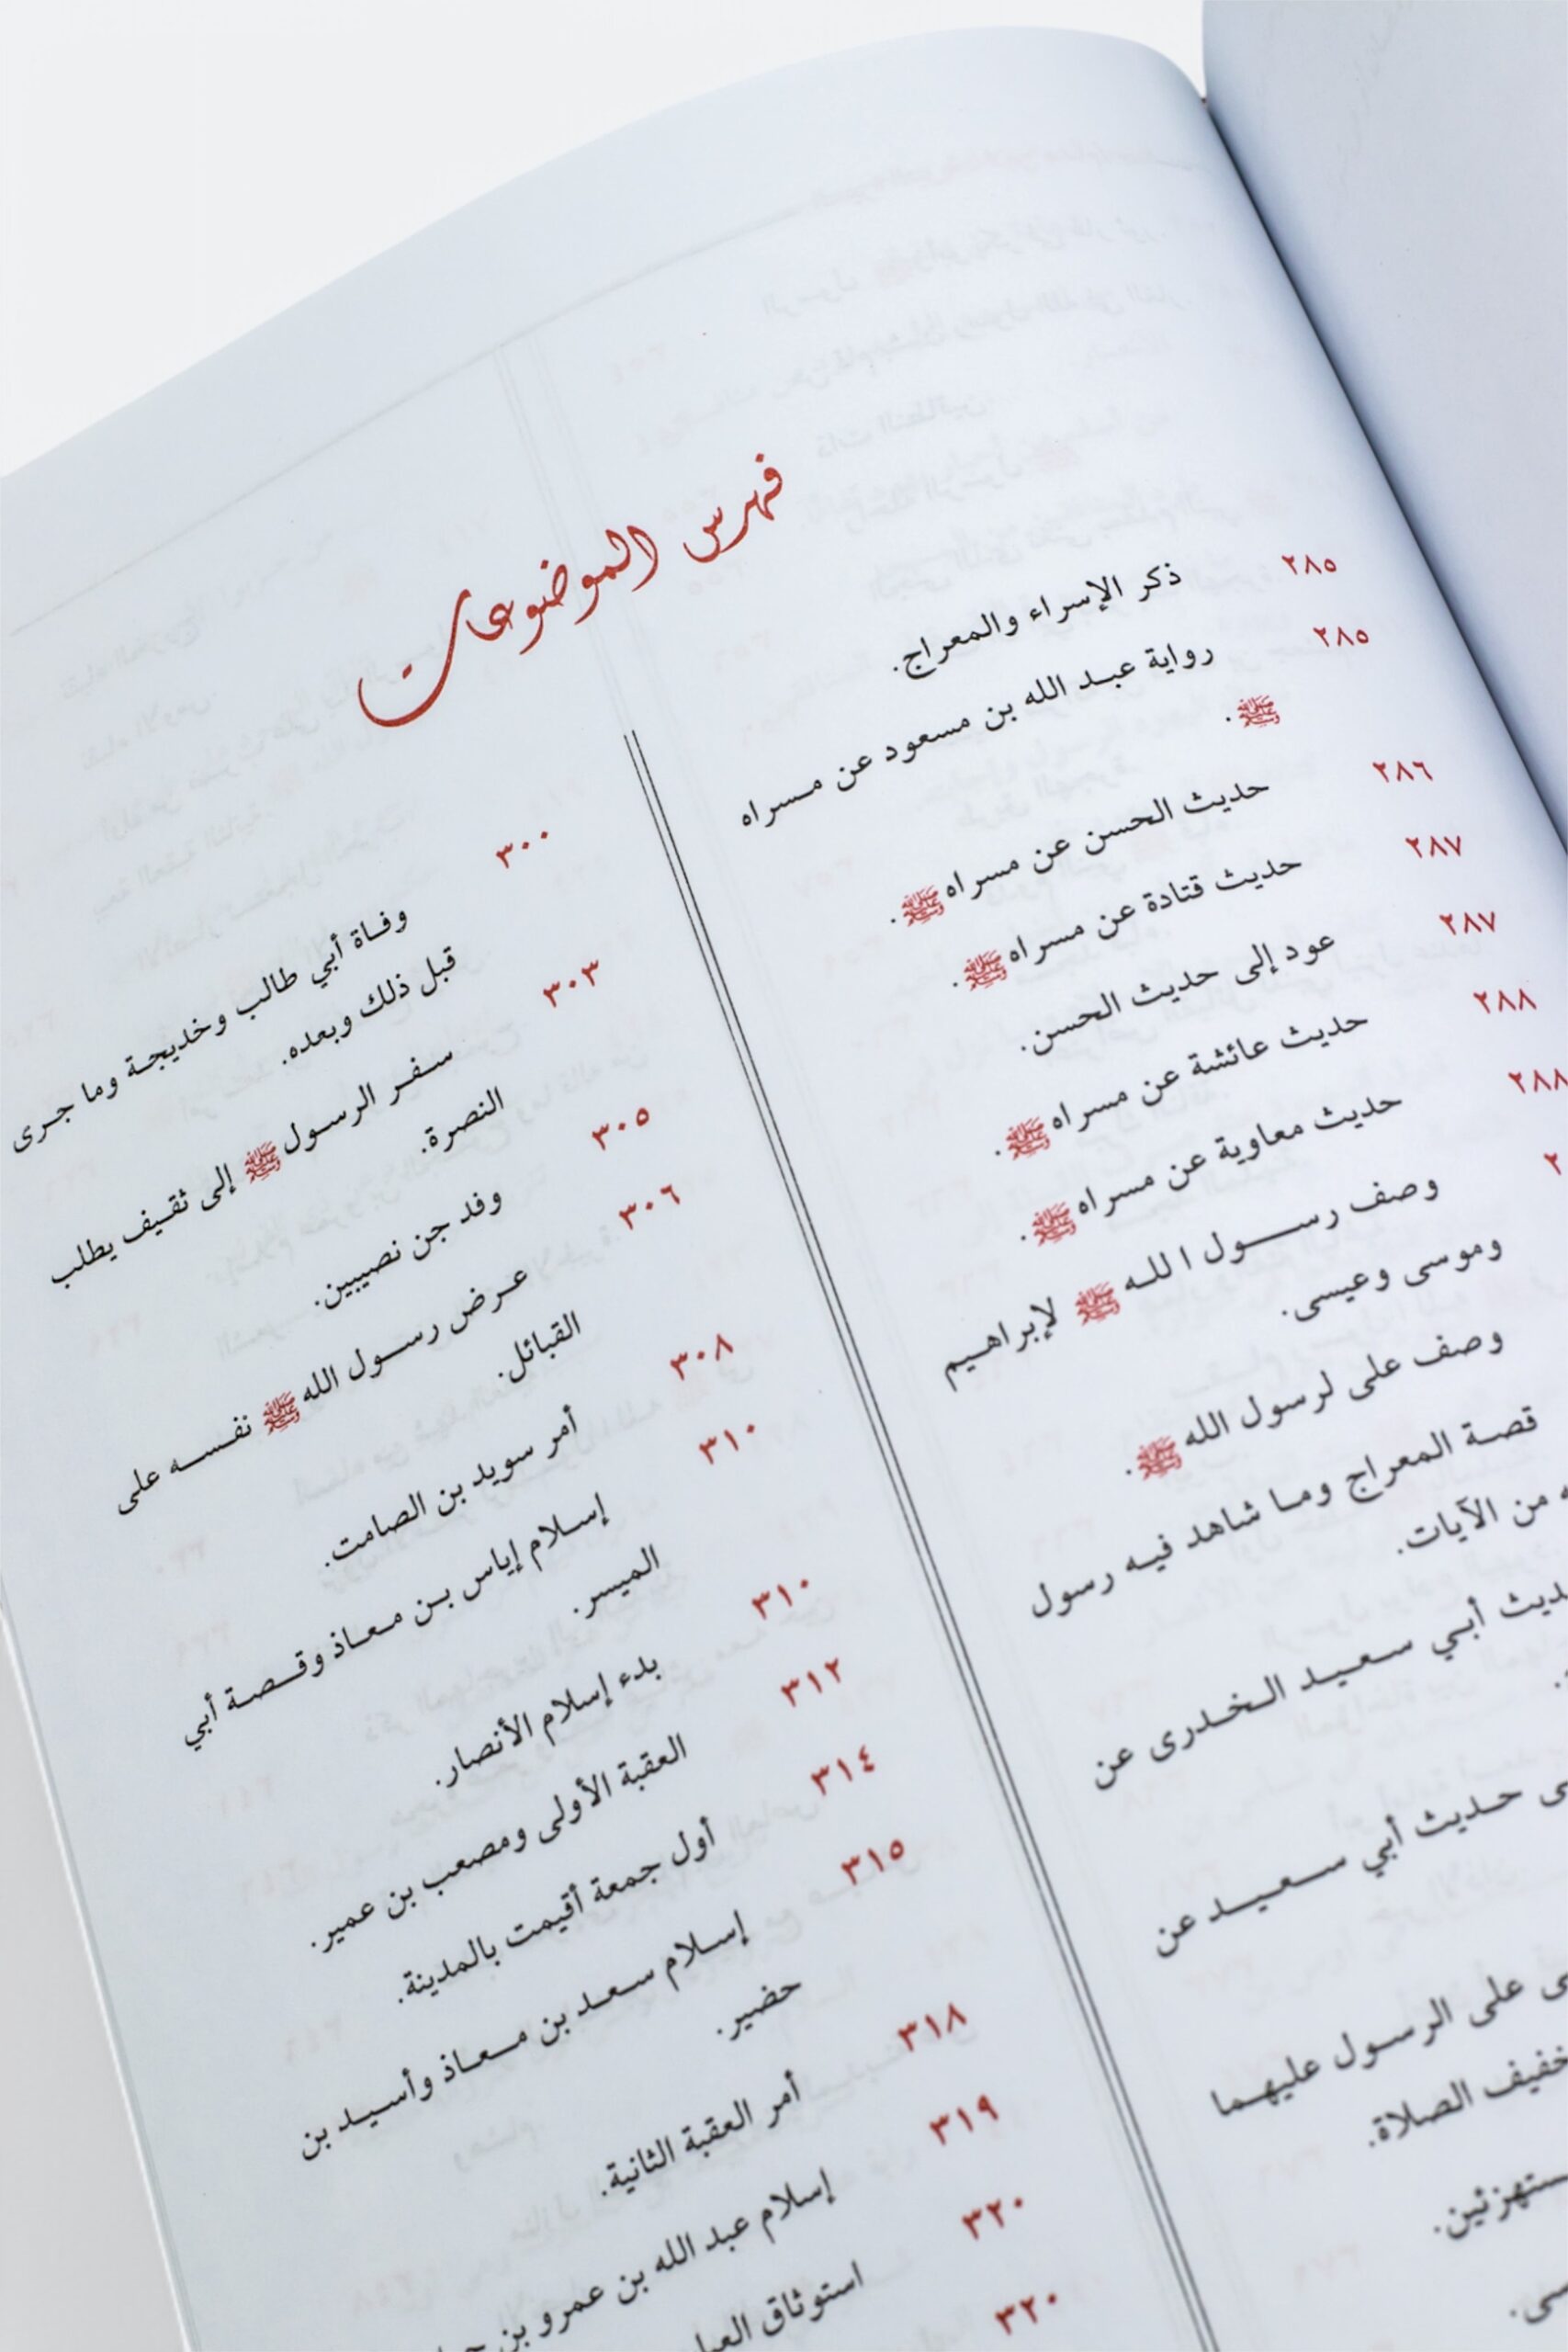 فهرس الموضوعات
٢٨٥ ذكر الإسراء والمعراج.
٢٨٥ رواية عبد الله بن مسعود عن مسراه
ﷺ.
٢٨٦ حديث الحسن عن مسراه ﷺ.
٢٨٧ حديث قتادة عن مسراه ﷺ.
٢٨٧ عود إلى حديث الحسن.
٢٨٨ حديث عائشة عن مسراه ﷺ.
٢٨٨ حديث معاوية عن مسراه ﷺ.
وصف رسول الله ﷺ لإبراهيم
وموسى وعيسى.
وصف على لرسول الله ﷺ.
قصة المعراج وما شاهد فيه رسول
من الآيات.
أبي سعيد الخدرى عن
حديث أبي سعيد عن
على الرسول عليهما
الصلاة.
٣٠٠ وفاة أبي طالب وخديجة وما جرى
قبل ذلك وبعده.
٣٠٣ سفر الرسول ﷺ إلى ثقيف يطلب
النصرة.
٣٠٥ وفد جن نصيبين.
٣٠٦ عرض رسول الله ﷺ نفسه على
القبائل.
٣٠٨ أمر سويد بن الصامت.
٣١٠ إسلام إياس بن معاذ وقصة أبي
الميسر.
٣١٠ بدء إسلام الأنصار.
٣١٢ العقبة الأولى ومصعب بن عمير.
٣١٤ أول جمعة أقيمت بالمدينة.
٣١٥ إسلام سعد بن معاذ وأسيد بن
حضير.
٣١٨ أمر العقبة الثانية.
٣١٩ إسلام عبد الله بن عمرو بن
٣٢٠ استوثاق
٣٢٠